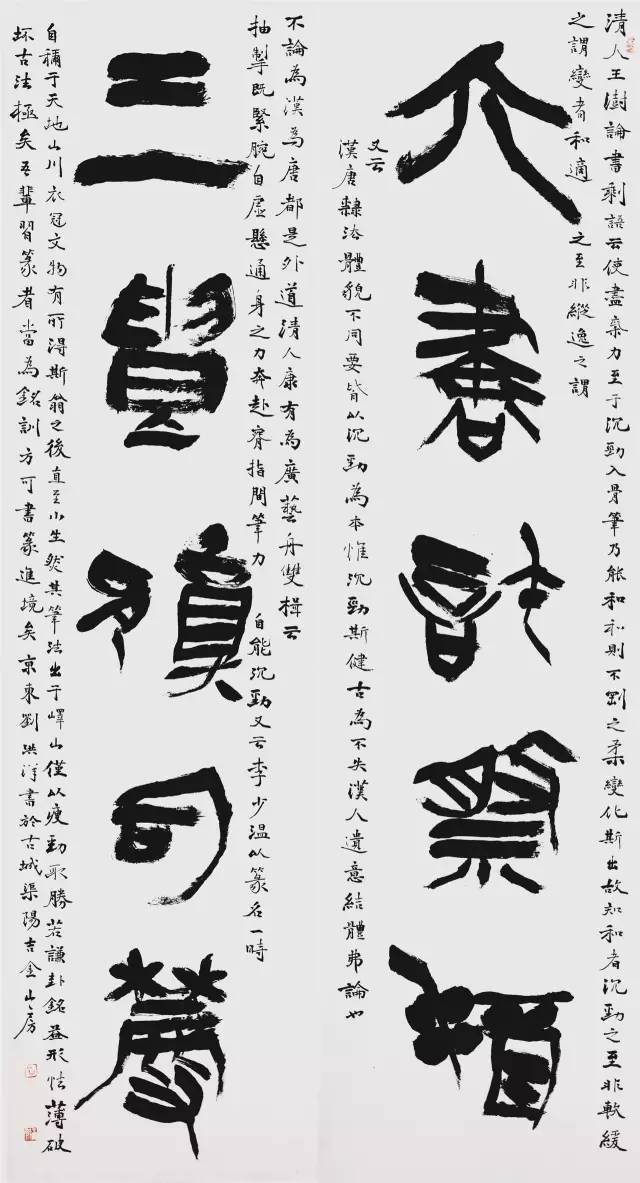 清人王澍論書剩語云使盡氣力至于沉勁入骨筆乃能和和則不剛之柔變化斯出故知和者沉勁之至非軟緩
之謂變者和適之至非縱逸之謂
書許祭
又云
漢唐隸法體貌不同要皆以沉勁為本惟沉勁斯健古為不失漢人遺意結體弗論也
不論為漢為唐都是外道清人康有為廣藝舟雙楫云
抽掣既緊腕自虛懸通身之力奔赴齊指間筆力自能沉勁又云李少溫以篆名一時
司
自稱于天地山川衣冠文物有所得斯翁之後直至小生然其筆法出于嶧山僅以瘦勁取勝若謙卦銘益形怯薄破
坏古法極矣吾輩習篆者當為銘訓方可書篆進境矣京東劉洪洋書於古城渠陽吉金山房